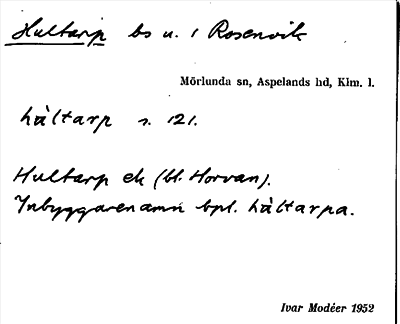 Hultarp bs u. 1 Rosenvik
Mörlunda sn, Aspelands hd, Klm. l.
hàltarp s. 121.
Hultarp ek (bl. Horvan).
Inbyggarenamn bpl. hàltarpa.
Ivar Modéer 1952